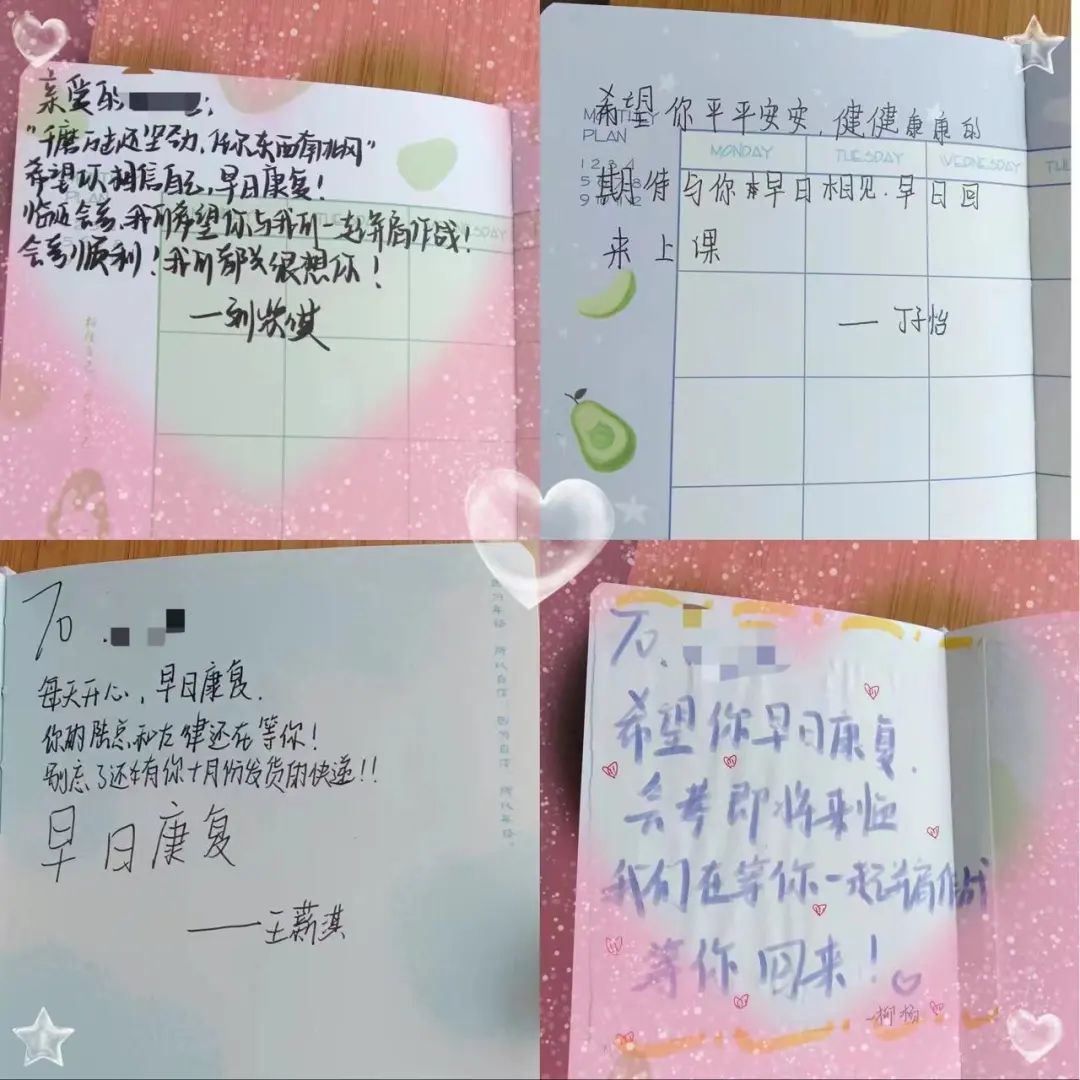 亲爱的
"千磨万击还坚劲,任尔东西南北风"
希望你相信自己,早日康复!
临近会考,我们希望你与我们一起并肩作战!
会考顺利!我们都很想你!
希望你平平安安,健健康康的
MONTHLY
PLAN
MONDAY
TUESDAY
WEDNESDAY
期待与你早日相见.早日回
来上课
——丁子怡
TO.
每天开心,早日康复.
你的陆总和左律还在等你!
别忘了还有你十月份发货的快递!!
早日康复
——王薪淇
TO.
希望你早日康复.
会考即将来临
我们在等你一起并肩作战
等你回来!
-柳杨